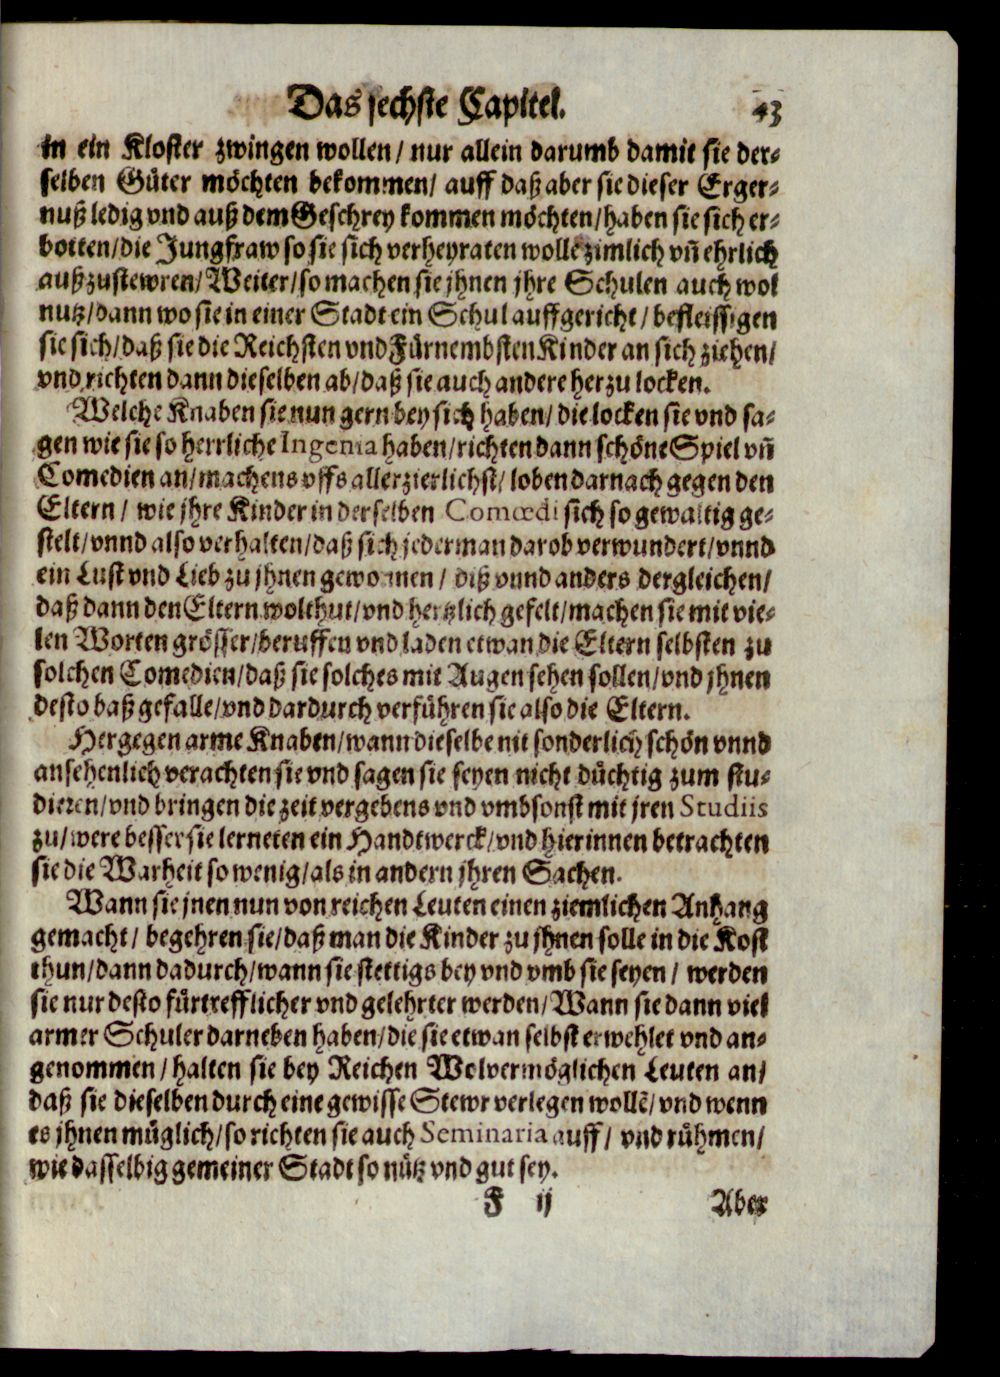 Das sechste Capitel. 43
in ein Kloster zwingen wollen / nur allein darumb damit sie der⸗
selben Güter möchten bekommen / auff daß aber sie dieser Erger⸗
nuß ledig vnd auß dem Geschrey kommen möchten / haben sie sich er⸗
botten / die Jungfraw so sie sich verheyraten wollẽ zimlich vñ ehrlich
außzustewren / Weiter / so machen sie jhnen jhre Schulen auch wol
nutz / dann wo sie in einer Stadt ein Schul auffgericht / befleissigen
sie sich / daß sie die Reichsten vnd Fürnembsten Kinder an sich ziehen /
vnd richten dann dieselben ab / daß sie auch andere herzu locken.
Welche Knaben sie nun gern bey sich haben / die locken sie vnd sa⸗
gen wie sie so herrliche Ingenia haben / richten dann schöne Spiel vñ
Comedien an / machens vffs allerzierlichst / loben darnach gegen den
Eltern / wie jhre Kinder in derselben Comœdi sich so gewaltig ge⸗
stelt / vnnd also verhalten / daß sich jederman darob verwundert / vnnd
ein Lust vnd Lieb zu jhnen gewonnen / diß vnnd anders dergleichen /
daß dann den Eltern wolthut / vnd hertzlich gefelt / machen sie mit vie⸗
len Worten grösser / beruffen vnd laden etwan die Eltern selbsten zu
solchen Comedien / daß sie solches mit Augen sehen sollen / vnd jhnen
desto baß gefalle / vnd dardurch verführen sie also die Eltern.
Hergegen arme Knaben / wann dieselbe nit sonderlich schön vnnd
ansehenlich verachten sie vnd sagen sie seyen nicht düchtig zum stu⸗
dieren / vnd bringen die zeit vergebens vnd vmbsonst mit jren Studiis
zu / were besser sie lerneten ein Handtwerck / vnd hierinnen betrachten
sie die Warheit so wenig / als in andern jhren Sachen.
Wann sie jnen nun von reichen Leuten einen ziemlichen Anhang
gemacht / begehren sie / daß man die Kinder zu jhnen solle in die Kost
thun / dann dadurch / wann sie stettigs bey vnd vmb sie seyen / werden
sie nur desto fürtrefflicher vnd gelehrter werden / Wann sie dann viel
armer Schuler darneben haben / die sie etwan selbst erwehlet vnd an⸗
genommen / halten sie bey Reichen Wolvermöglichen Leuten an /
daß sie dieselben durch eine gewisse Stewr verlegen wollẽ / vnd wenn
es jhnen müglich / so richten sie auch Seminaria auff / vnd rühmen /
wie dasselbig gemeiner Stadt so nütz vnd gut sey.
F ij Aber